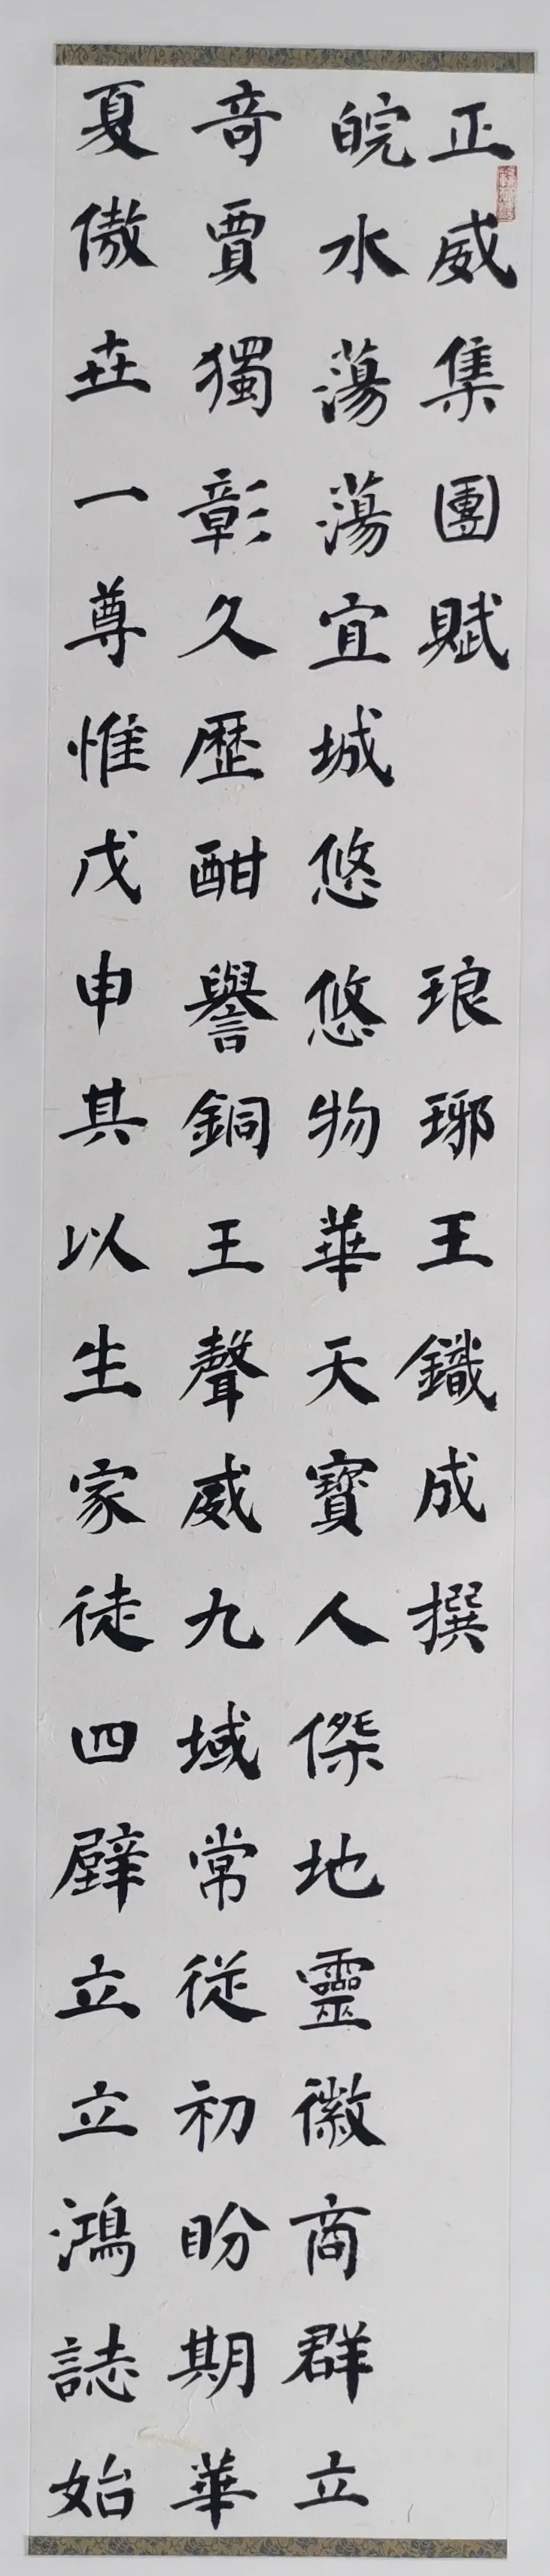 正威集團賦 琅琊王鐵成撰
皖水蕩蕩宜城悠悠物華天寶人傑地靈徽商群立
奇賈獨彰久歷酣譽銅王聲威九域常從初盼期華
夏傲世一尊惟戊申其以生家徒四壁立立鴻誌始